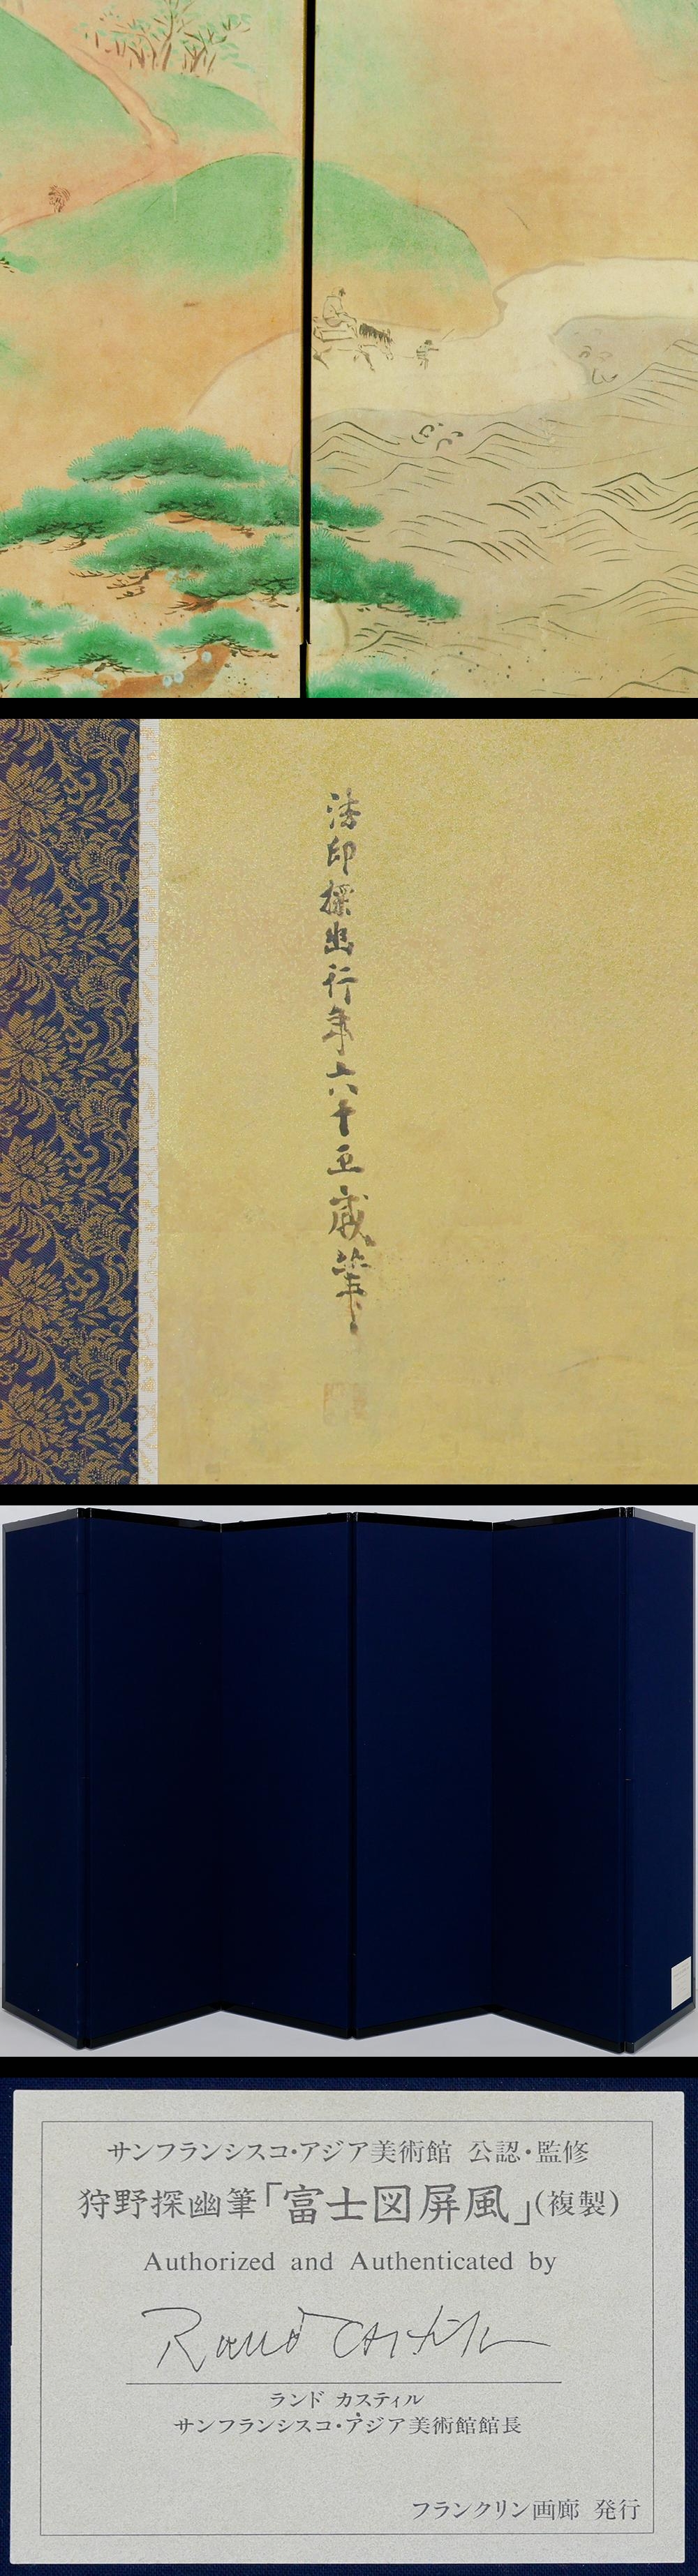 法印探幽行年六十五歳筆
サンフランシスコ・アジア美術館 公認・監修
狩野探幽筆「富士図屏風」(複製)
Authorized and Authenticated by
Rand Castile
ランド カスティル
サンフランシスコ・アジア美術館館長
フランクリン画廊 発行